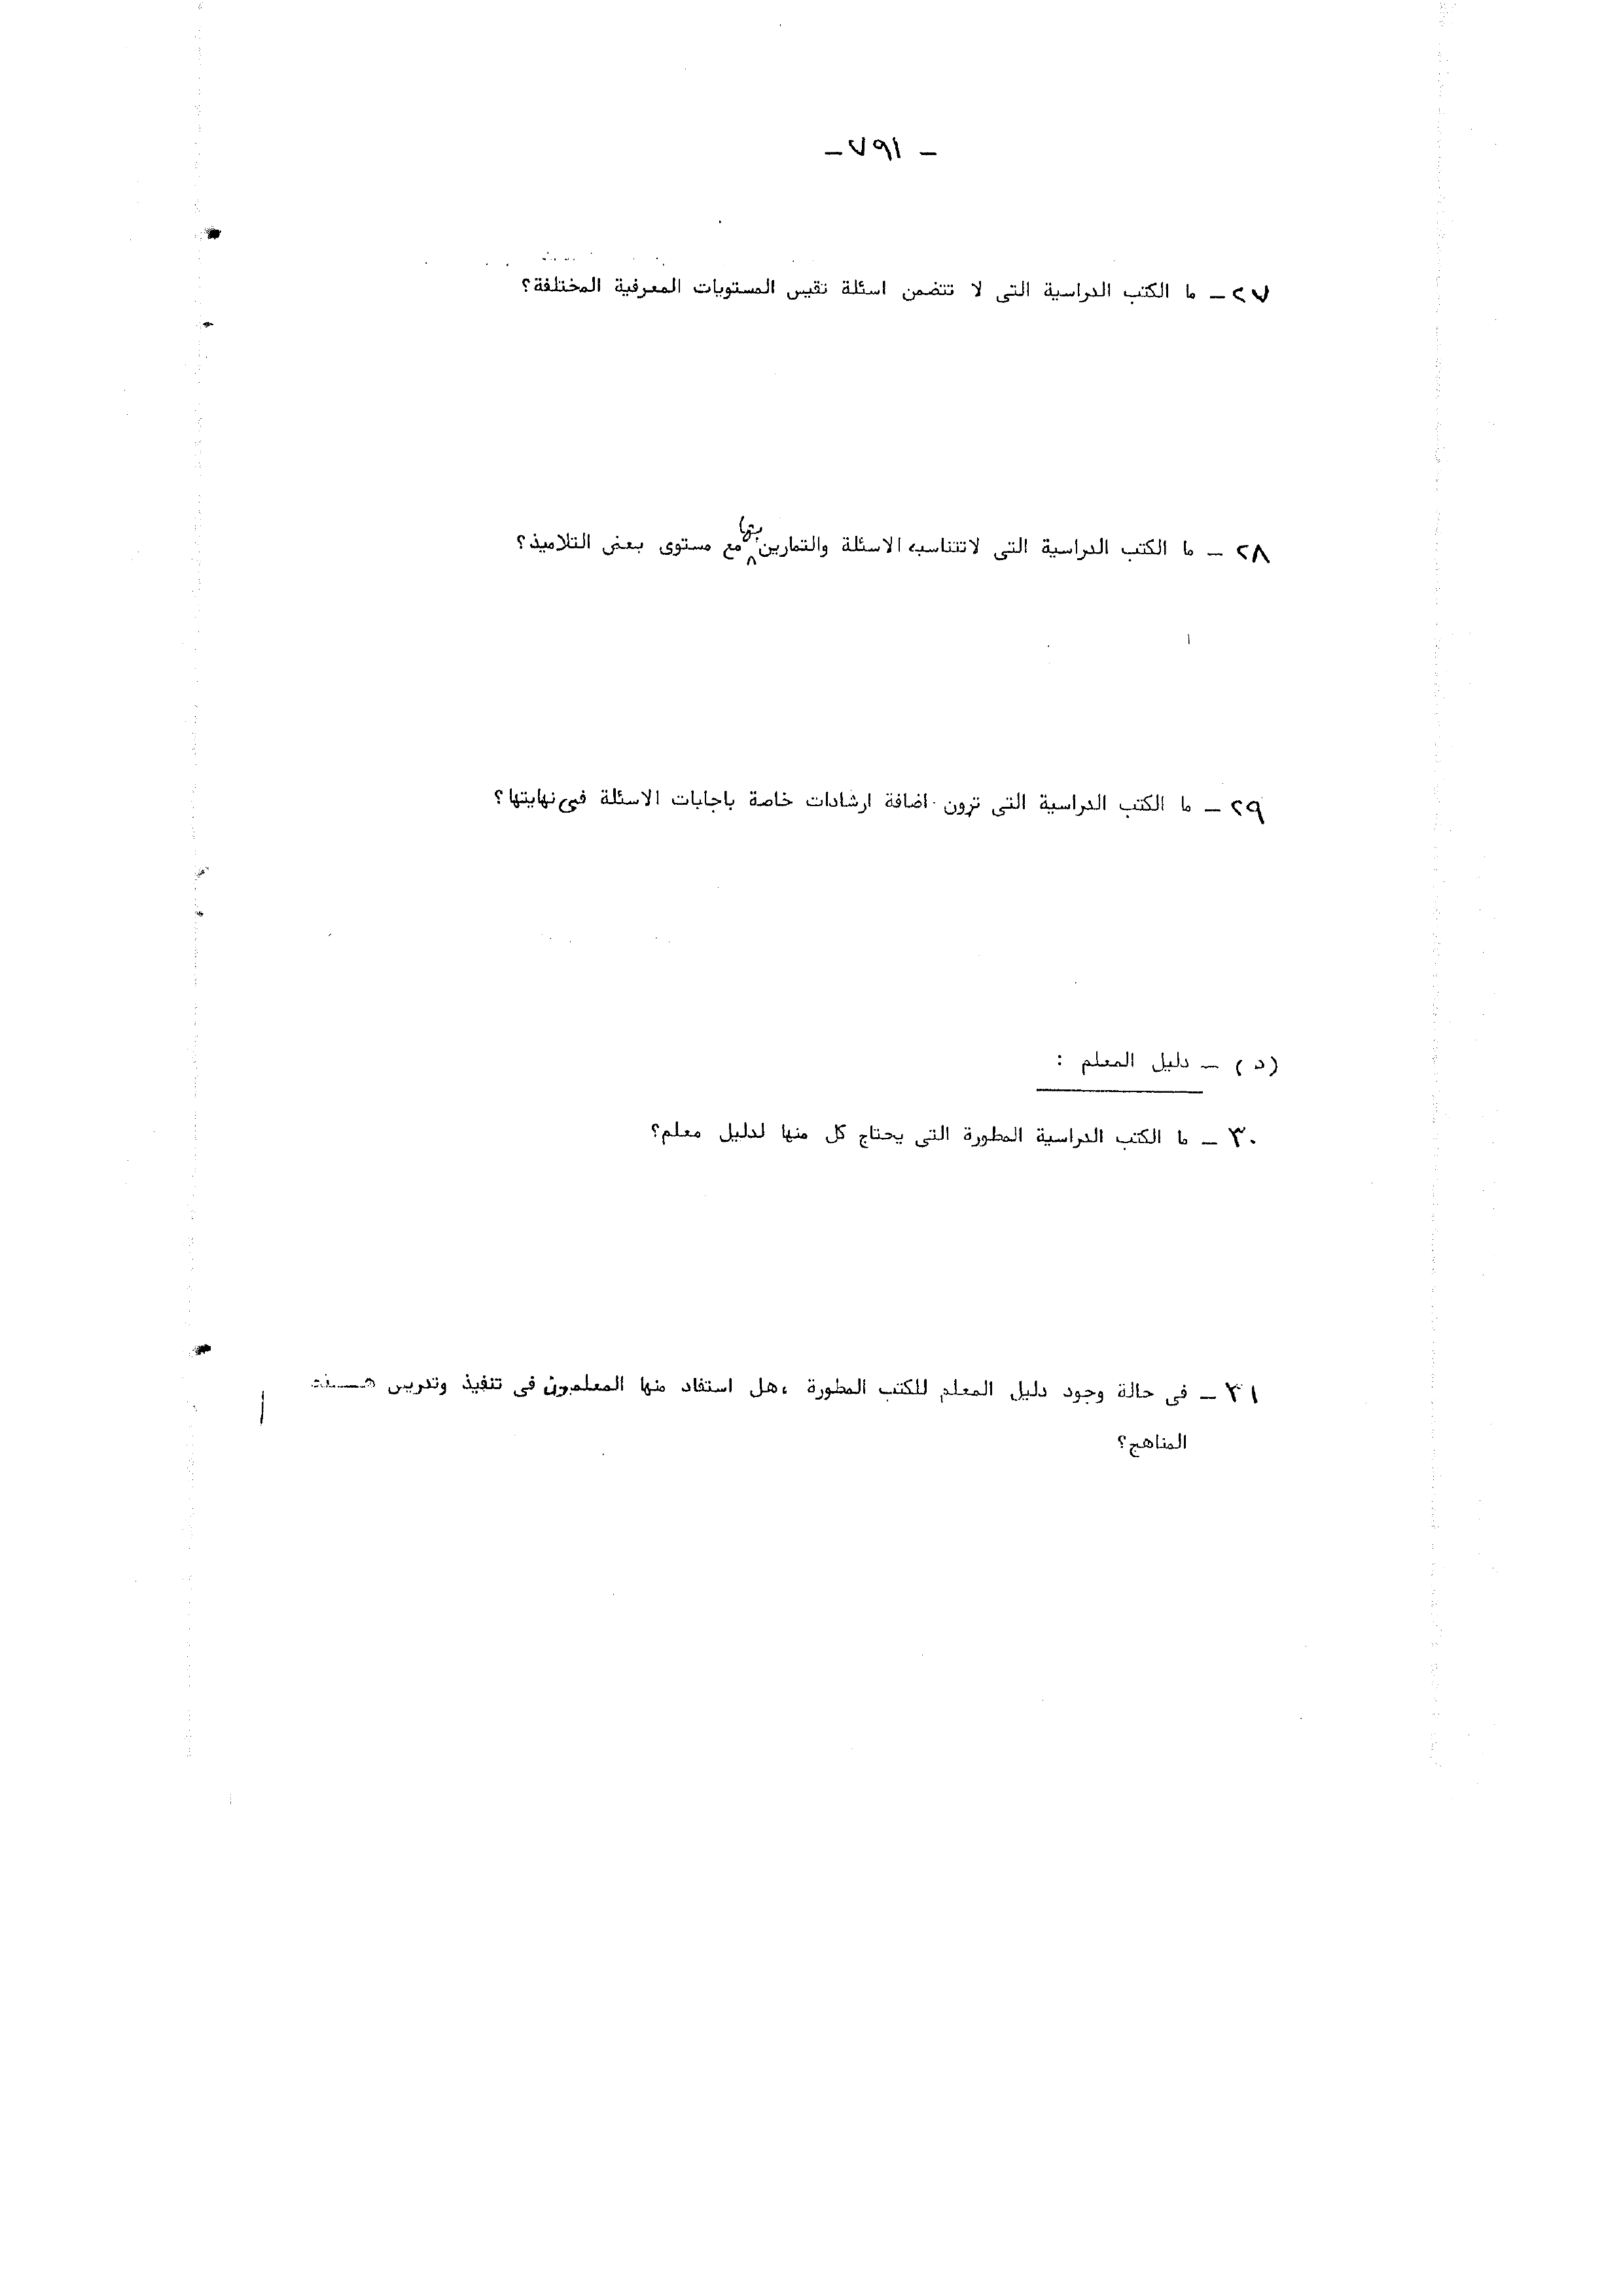 - ٧٩١ -
٢٧ - ما الكتب الدراسية التى لا تتضمن اسئلة تقيس المستويات المعرفية المختلفة؟
٢٨ - ما الكتب الدراسية التى لاتتناسب الاسئلة والتمارين بها مع مستوى بعض التلاميذ؟
٢٩ - ما الكتب الدراسية التى ترون اضافة ارشادات خاصة باجابات الاسئلة فى نهايتها؟
(د) - دليل المعلم :
٣٠ - ما الكتب الدراسية المطورة التى يحتاج كل منها لدليل معلم؟
٣١ - فى حالة وجود دليل المعلم للكتب المطورة ،هل استفاد منها المعلمون فى تنفيذ وتدريس
المناهج؟